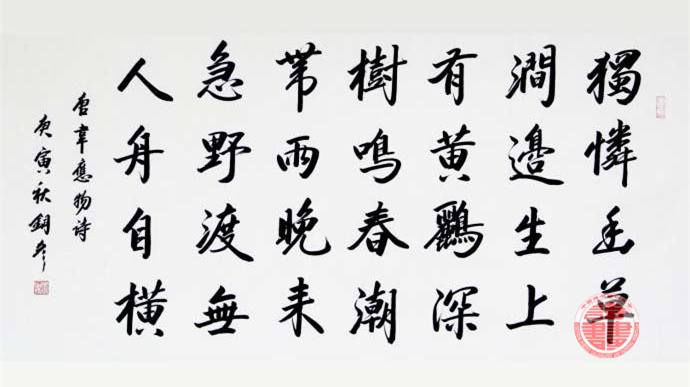 獨憐幽草
澗邊生上
有黄鸝深
樹鳴春潮
帶雨晚来
急野渡無
人舟自橫
唐韋應物诗
庚寅秋